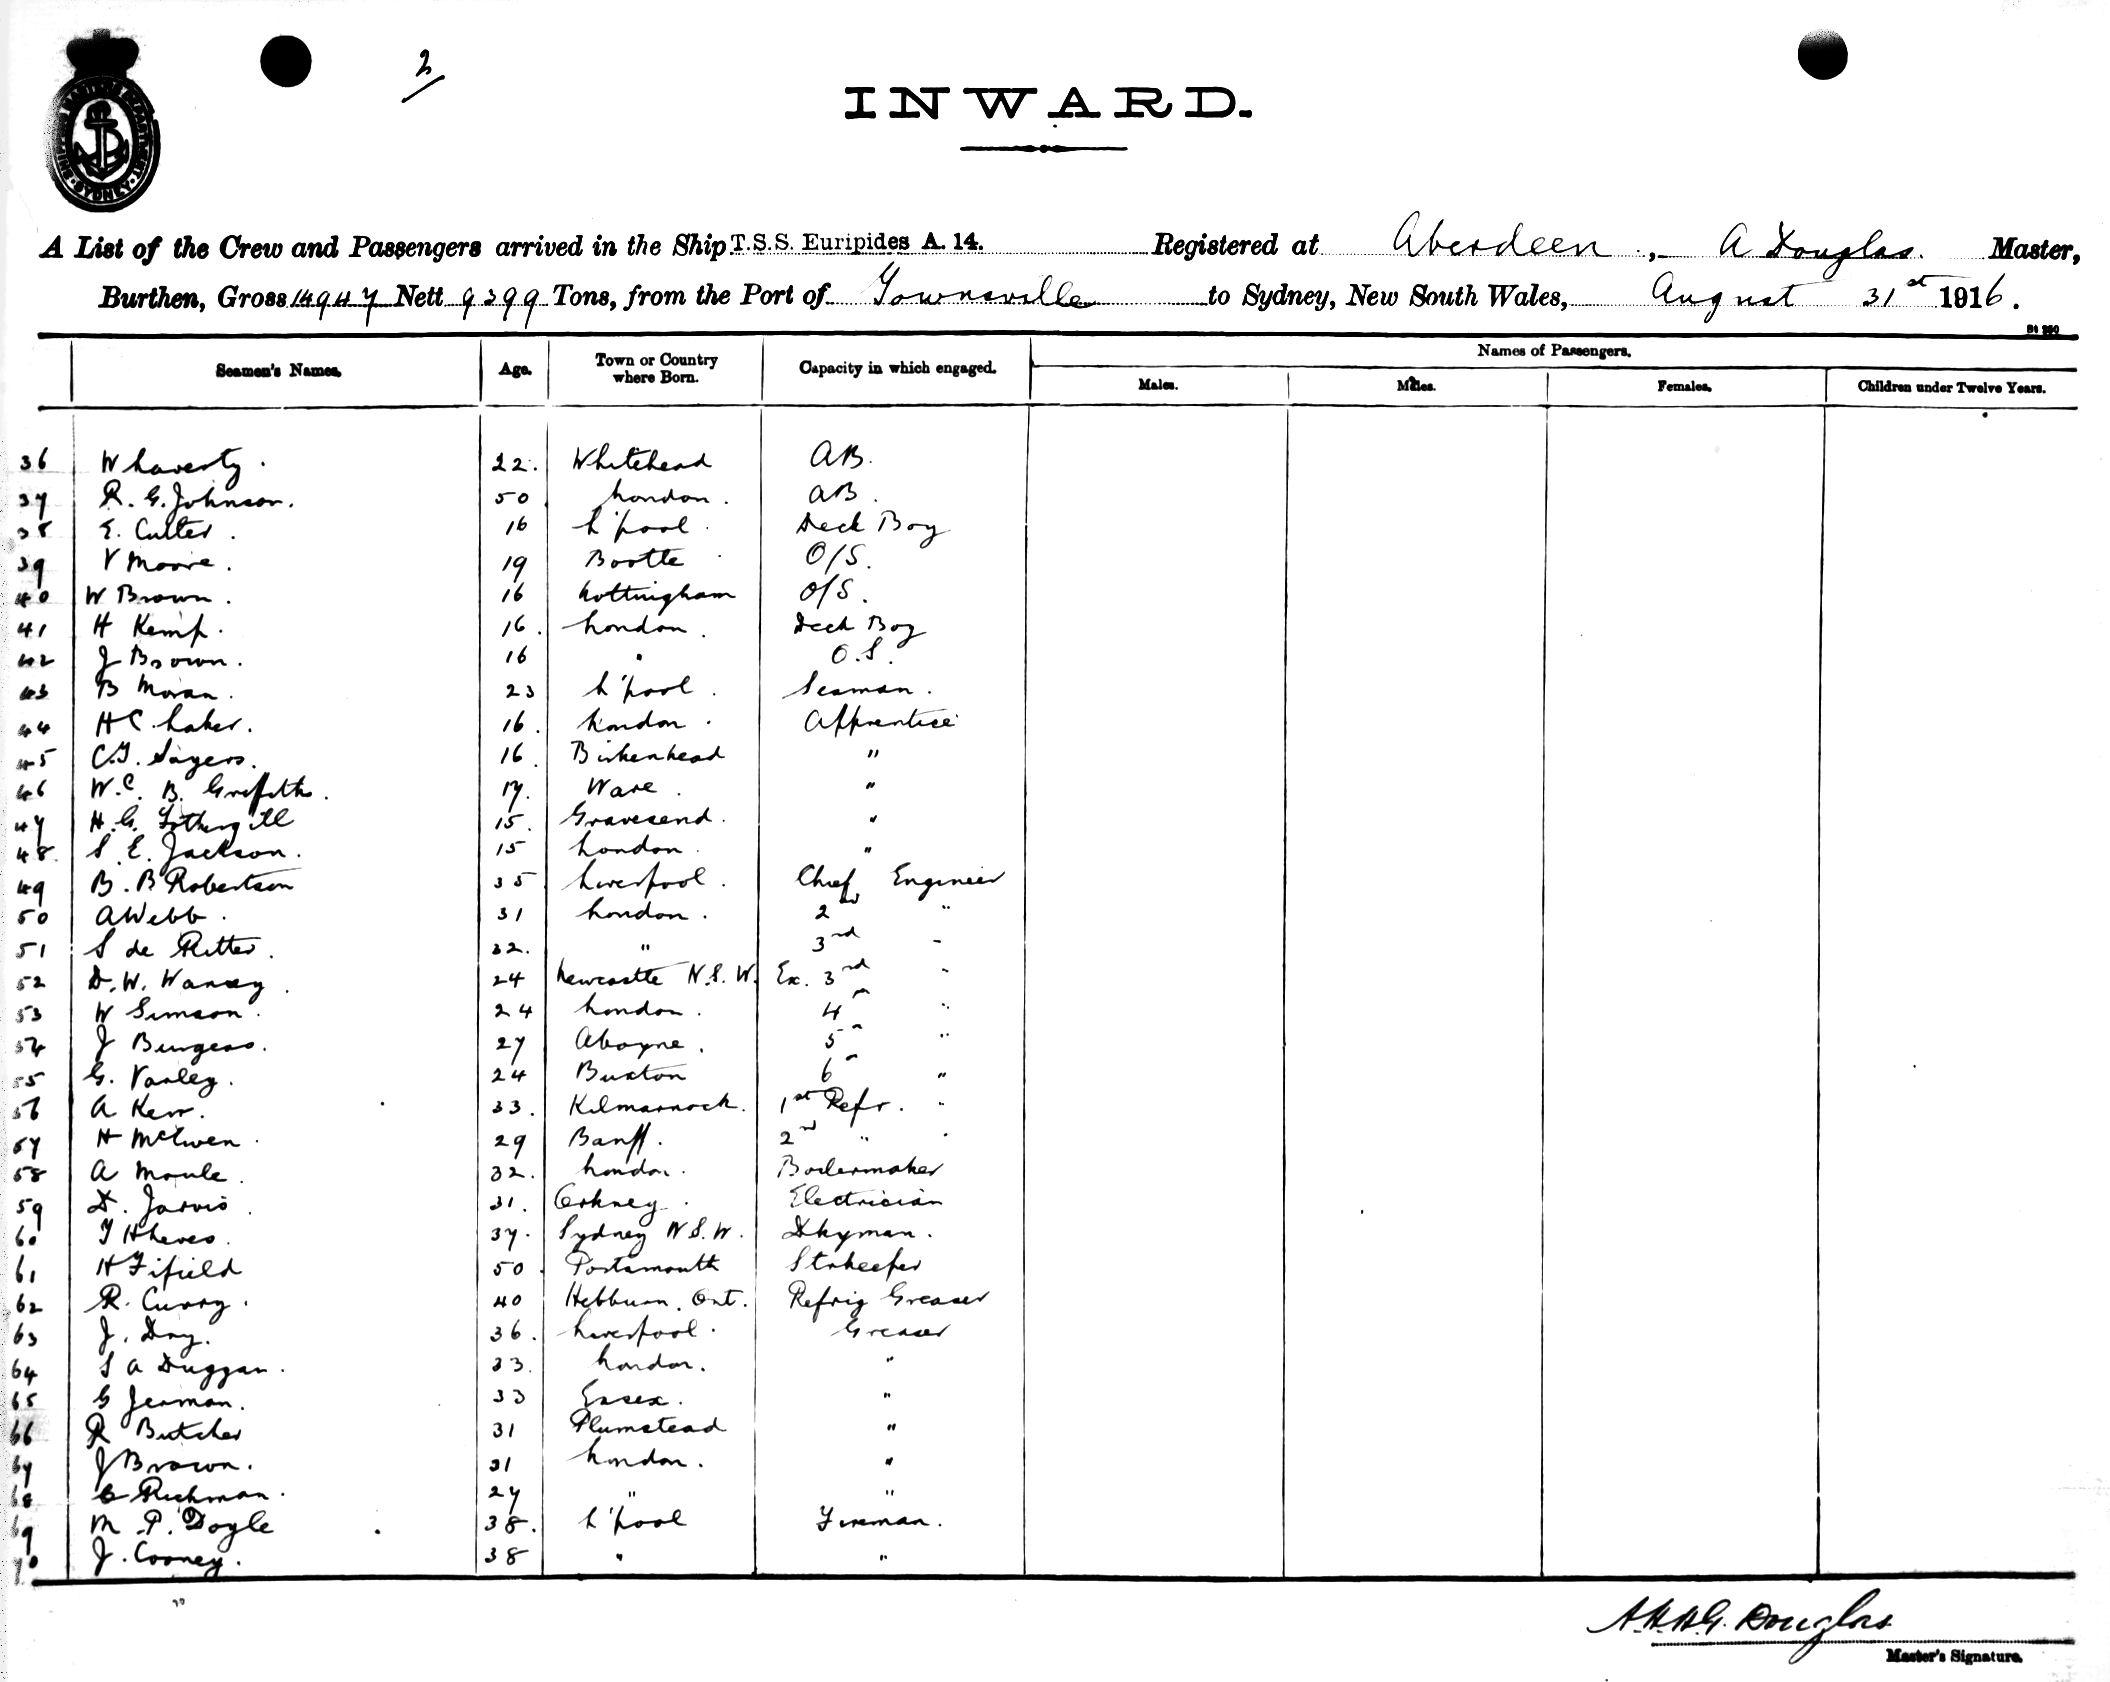 SHIPPING MASTER'S DEPARTMENT SYDNEY
2
INWARD.
A List of the Crew and Passengers arrived in the Ship T.S.S. Euripides A. 14. Registered at Aberdeen, A Douglas. Master,
Burthen, Gross 14947 Nett 9399 Tons, from the Port of Townsville to Sydney, New South Wales, August 31st 1916.
St 290
Seamen's Names. Age. Town or Country where Born. Capacity in which engaged. Names of Passengers.
Males. Males. Females. Children under Twelve Years.
36 W Laverty. 22. Whitehead AB.
37 R. G. Johnson. 50 London. AB.
38 E. Culter. 16 L'pool. Deck Boy
39 V Moore. 19 Bootle O/S.
40 W Brown. 16 Nottingham O/S.
41 H Kemp. 16. London. Deck Boy
42 J Brown. 16 " O.S.
43 B Moran. 23 L'pool. Seaman.
44 H C Laker. 16. London. Apprentice
45 C.T. Sayers. 16. Birkenhead "
46 W.C. B. Griffiths. 17. Ware. "
47 H.G. Fothergill 15. Gravesend. "
48. S. E. Jackson. 15 London. "
49 B. B Robertson 35 Liverpool. Chief Engineer
50 A Webb. 31 London. 2nd "
51 S de Ritter. 32. " 3rd "
52 D. W. Warsey. 24 Newcastle N.S.W. Ex. 3rd "
53 W Simson. 24 London. 4th "
54 J Burgess. 27 Aboyne. 5th "
55 G. Varley. 24 Buxton 6th "
56 A Kerr. 33. Kilmarnock. 1st Refr. "
57 H McEwen. 29 Banff. 2nd " "
58 A Moule. 32. London. Boilermaker
59 D. Jarvis. 31. Orkney. Electrician
60 T H Leves. 37. Sydney N.S.W. Dkyman.
61 H Fifield 50. Portsmouth Strkeeper
62 R. Curry. 40 Hebburn. Ont. Refrig Greaser
63 J. Day. 36. Liverpool. Greaser
64 S A Duggan. 33. London. "
65 G Jerman. 33 Essex. "
66 R Butcher 31 Plumstead "
67 J Brown. 31 London. "
68 C Richman. 27 " "
69 M. P. Doyle 38. L'pool Fireman.
70 J. Cooney. 38 " "
A.H.H.G. Douglas
Master's Signature.